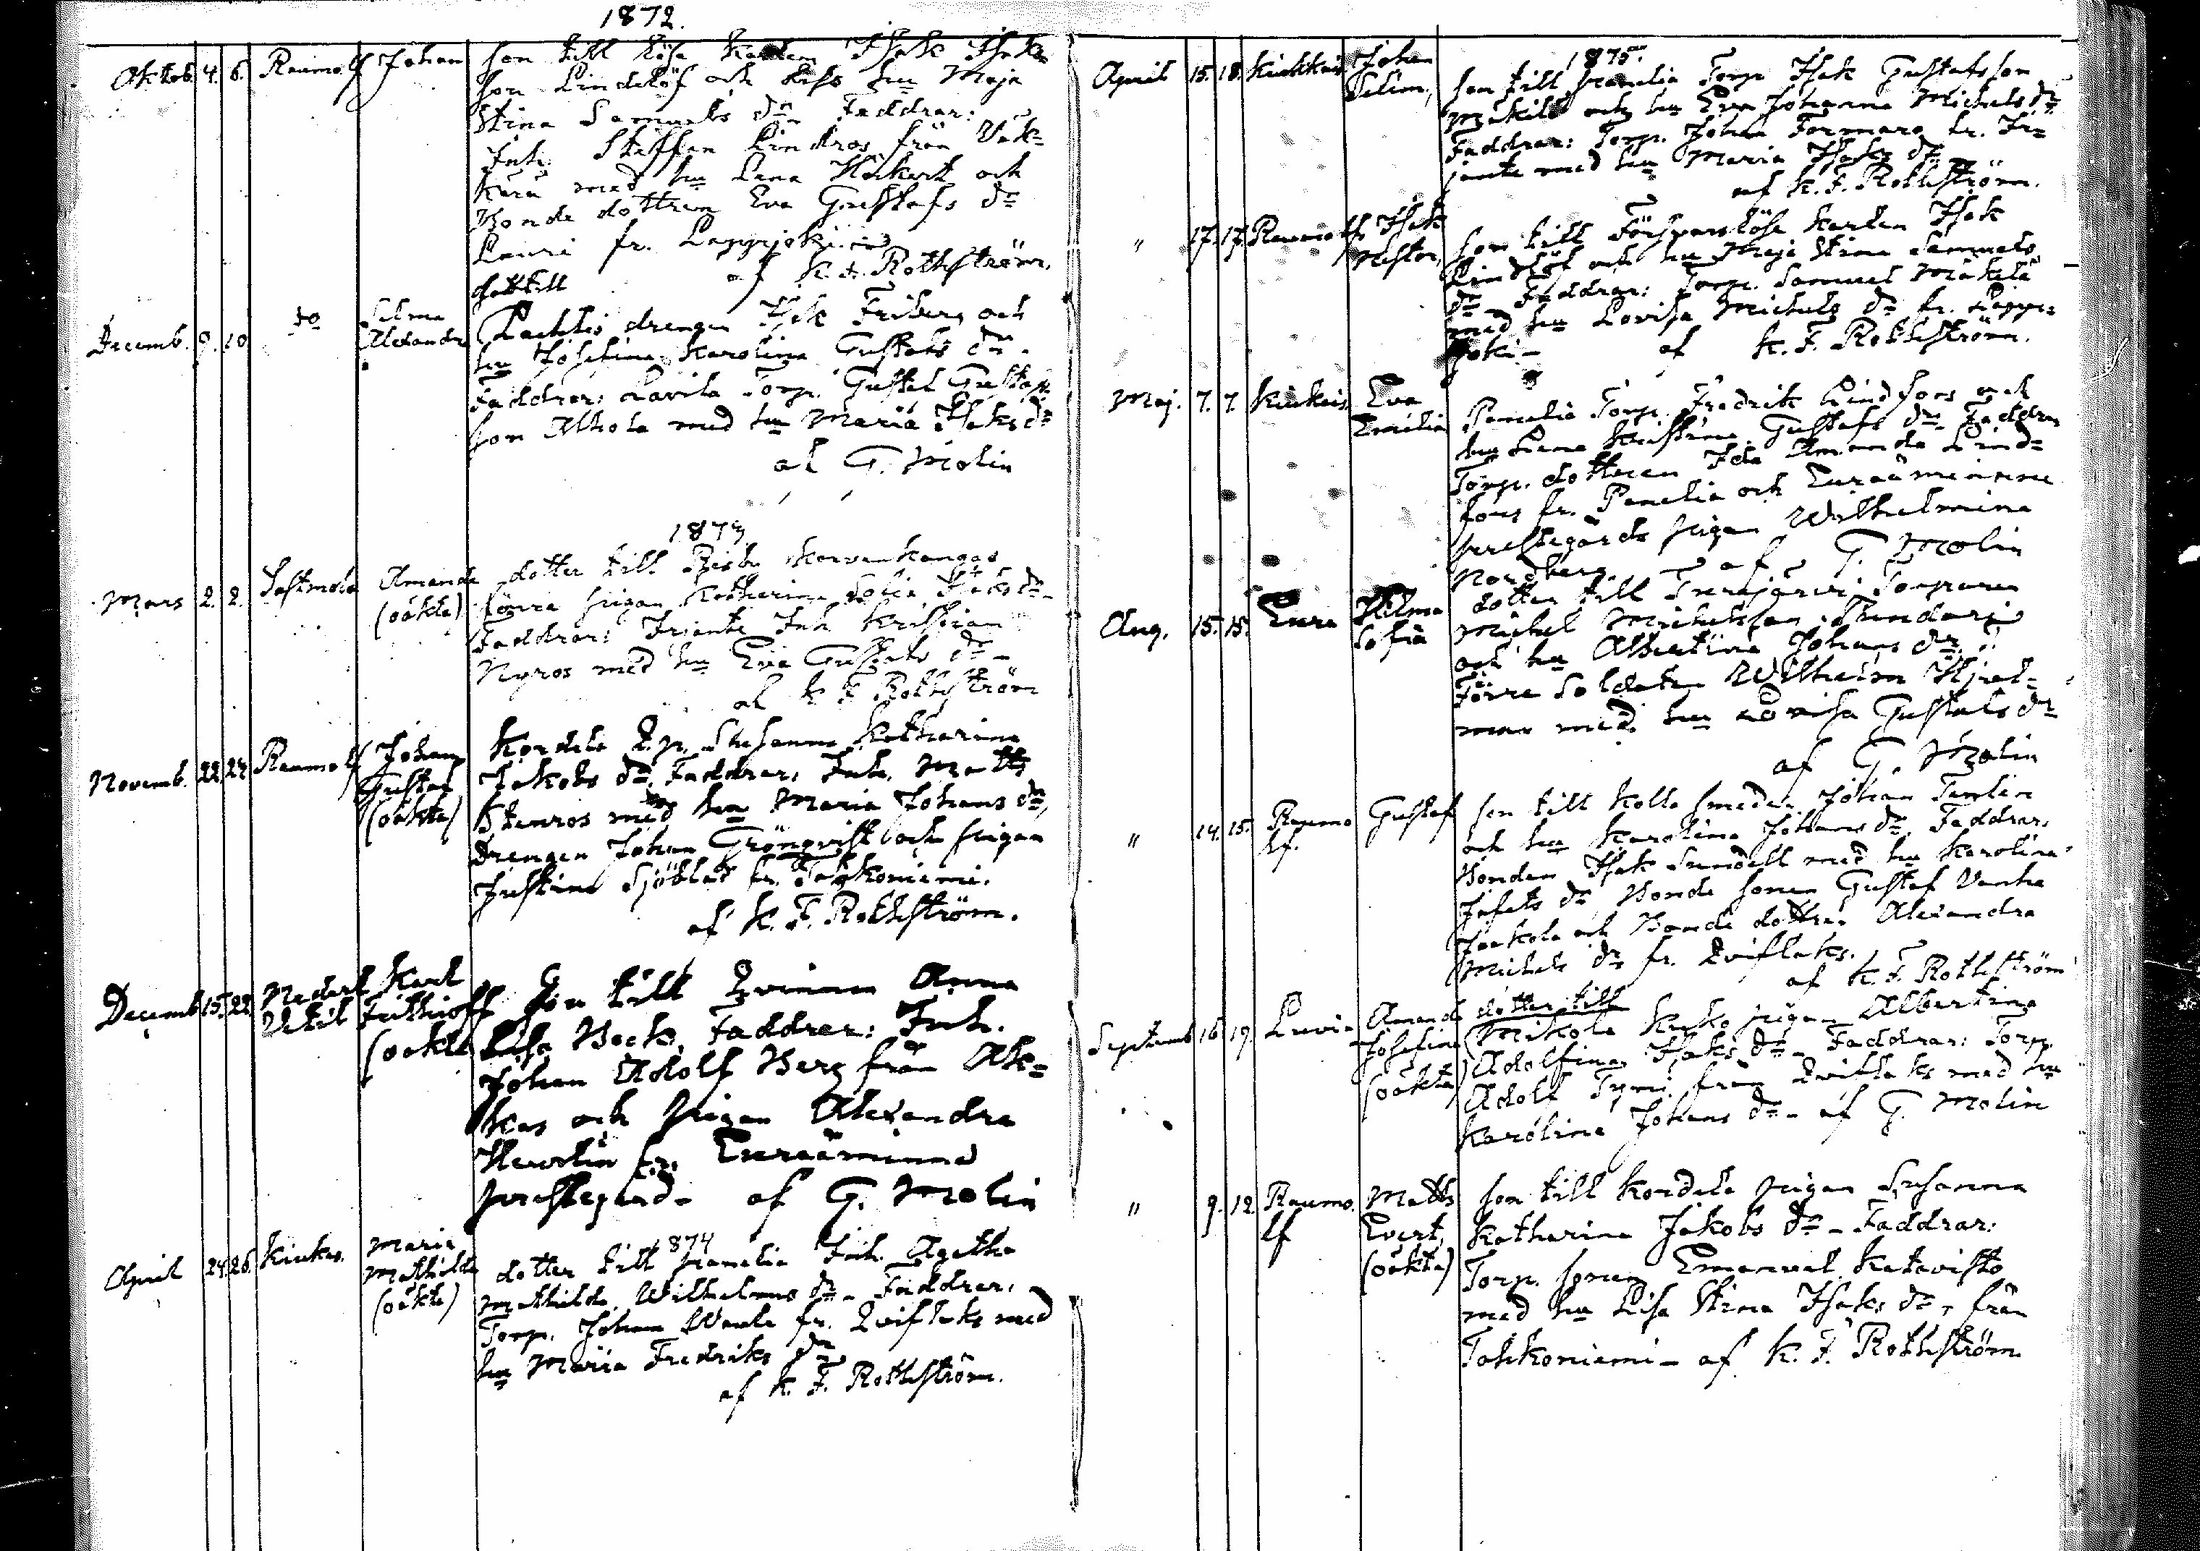 1872.
Oktob. 4. 6. Raumo lf Johan son till lösa karlen Isak Isaks
son Lindelöf och hu Maja
Stina Samuels dr Faddrar:
Inh. Steffan Lindros från
med hu Lena Höckert och
Bonde dottren Eva Gustafs dr
Lauri fr. Lappijoki
af K. F. Rothström.
dotter till
Decemb. 9. 10 do Selma
Alexandra drengen Isak Friberg och
hu Josefina Karolina Gustafs dr.
Faddrar: Lavila Torp. Gustaf Gustafs
son Alhola med hu Maria Isaks dr
af G. Molin
1873
Mars 2. 2. Sastmola Amanda
(oäkta) dotter till
förra pigan Katharina Sofia Isaks dr
Faddrar: Inh. Kristian
Nyros med hu Eva Gustafs dr
af K. F. Rothström
Novemb. 22 24 Raumo lf Johan
Gustaf
(oäkta) Kordela Q.p. Susanna Katharina
Jakobs dr. Faddrar: Inh. Matts
Stenros med hu Maria Johans dr,
Drengen Johan Grönqvist och pigan
Justina Sjöblad fr. Tahkoniemi.
af K. F. Rothström.
Decemb 15. 22 Karl
Frithioff
(oäkta son till Qvinnan Anna
Lisa Beck, Faddrar: Inh.
Johan Adolf Berg från
och pigan Alexandra
fr. Euraåminne
prestegård – af G. Molin
1874
April 24. 26. Kiukas. Maria
Mathilda
(oäkta) dotter till Panelia Inh. Agatha
Mathilda Wilhelms dr – Faddrar:
Torp. Johan fr. Qviflaks med
hu Maria Fredriks dr
af K. F. Rothström.
1875.
April 15. 18. Kiukkais Johan
Selim, son till Panelia Torp. Isak Gustafsson
Mäkilä och hu Eva Johanna Michels dr
Faddrar: Torp. Johan fr.
med hu Maria Isaks dr
af K. F. Rothström.
" 17. 17. Raumo lf Isak
Nestor, son till Försvarslöse karlen Isak
Lindelöf och hu Maja Stina Samuels
dr – Faddrar: Torp. Samuel Mäkelä
med hu Lovisa Michels dr fr. Lappi-
joki – af K. F. Rothström.
Maj. 7. 7. Kiukais Eva
Emilia Panelia Torp. Fredrik Lindfors och
hu Lena Kristina Gustafs dr. Faddrar
Torp. dottren Ida Amanda Lind-
fors fr. Panelia och Euraåminne
prestegårds pigan Wilhelmina
Nordberg. – af G. Molin
Aug. 15. 15. Eura Hilma
Sofia dotter till Torparen
Michel Michelsson
och hu Albertina Johans dr.
Förre Soldaten Wilhelm Hjel-
man med hu Lovisa Gustafs dr
af G. Molin
" 14. 15. Raumo
lf. Gustaf son till Kolla smeden Johan Tamlin
och hu Karolina Johans dr, Faddrar,
Bonden Isak Sundell med hu Karolina
Josefs dr Bonde sonen Gustaf Vanha
Jaakola och Bonde dottren Alexandra
Michels dr fr. Qviflaks.
af K. F. Rothström
Septemb 16. 19. Luvia Amanda
Josefina
(oäkta) dotter till
Mikola pigan Albertina
Adolfina Isaks dr – Faddrar: Torp.
Adolf från Qviflaks med hu
Karolina Johans dr – af G. Molin
" 9. 12 Raumo.
lf Matts
Evert,
(oäkta) son till Kordela pigan Susanna
Katharina Jakobs dr – Faddrar:
Torp. sonen Emanuel Katavisto
med hu Lisa Stina Isaks dr, från
Tahkoniemi – af K. F. Rothström